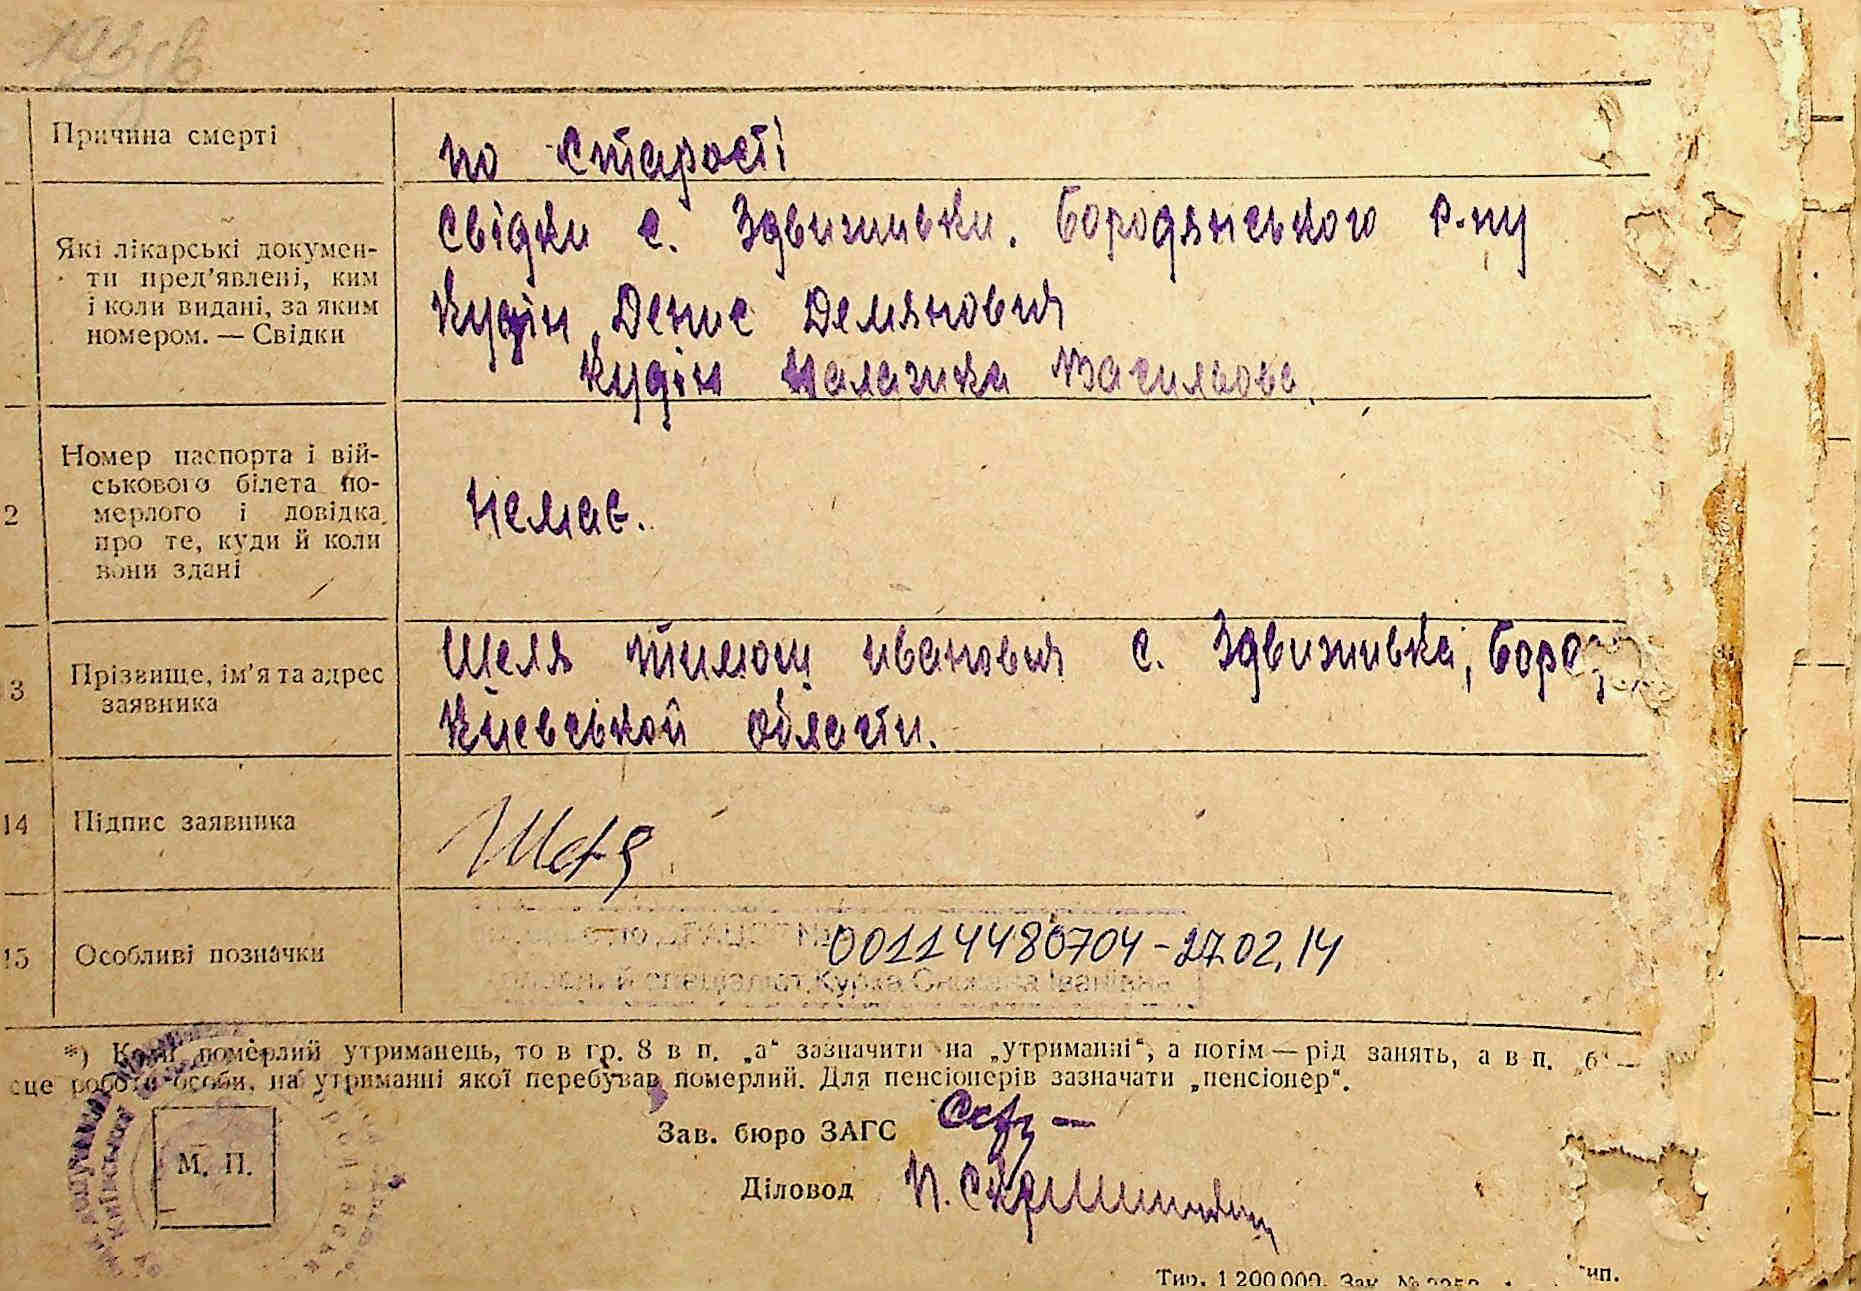 Причина смерті
по старості
Які лікарські докумен-
ти пред'явлені, ким
і коли видані, за яким
номером. — Свідки
свідки с. Здвиживки. Бородянського р-ну
Кудін Денис Демянович
Кудін Палажка Васильовс.
2
Номер паспорта і вій-
ськового білета по-
мерлого і довідка
про те, куди й коли
вони здані
Немає.
3
Прізвище, ім'я та адрес
заявника
Шеля тимош иванович с. Здвиживка, Боро
Киевської области.
14
Підпис заявника
Шеля
15
Особливі позначки
00114480704-27.02.14
спеціаліст Курка Сніжана Іванівна
*) Коли померлий утриманець, то в гр. 8 в п. „а“ зазначити на „утриманні“, а потім — рід занять, а в п. „б“ —
сце роботи особи, на утриманні якої перебував померлий. Для пенсіонерів зазначати „пенсіонер“.
М. П.
Зав. бюро ЗАГС
Діловод
Тир. 1 200 000. Зак. №